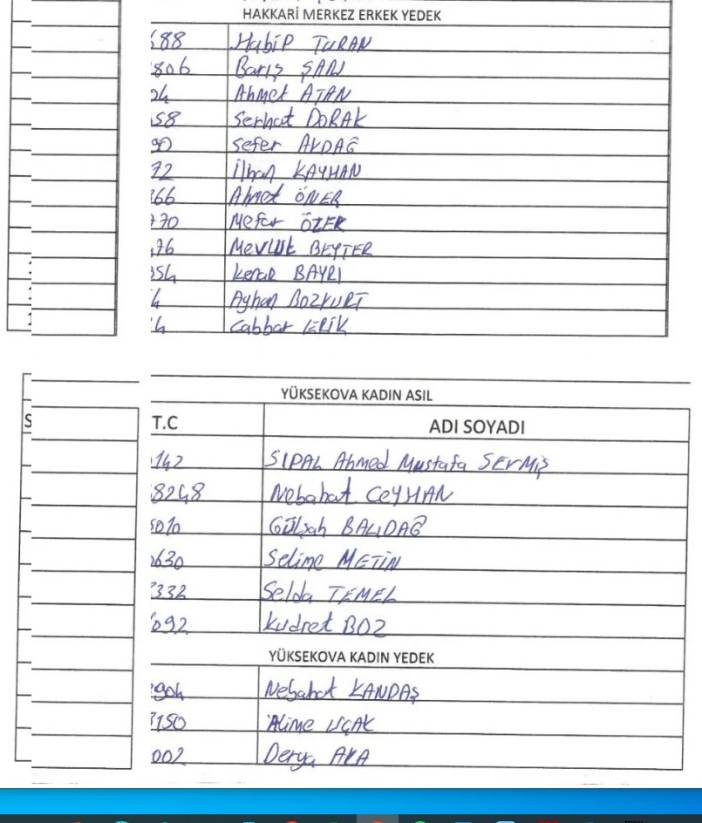 HAKKARİ MERKEZ ERKEK YEDEK
688 Habip TURAN
806 Barış SARI
24 Ahmet ATAN
58 Serhat DORAK
90 Sefer AKDAĞ
72 İlhan KAYHAN
166 Ahmet ÖNER
770 ÖZER
476 Mevlüt BEYTER
354 Kenar BAYRI
4 Ayhan BOZKURT
4 Cabbar ERİK
YÜKSEKOVA KADIN ASIL
T.C ADI SOYADI
142 SIPAL Ahmed Mustafa SEVMİŞ
8248 Nebahat CEYHAN
5010 Gülşah BALIDAĞ
2630 Selime METİN
7332 Selda TEMEL
692 Kudret BOZ
YÜKSEKOVA KADIN YEDEK
904 Nebahat KANDAŞ
7150 Alime UÇAK
002 Derya AKA